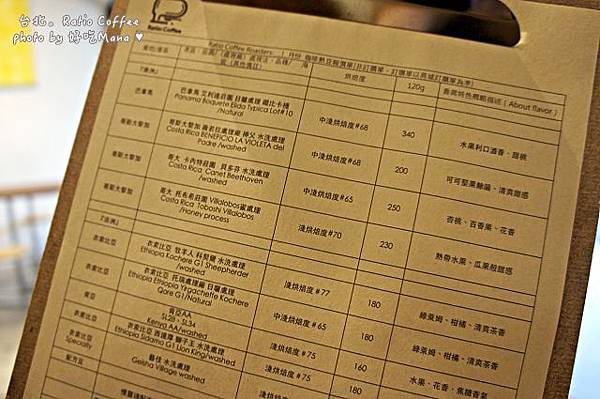 台北。Ratio Coffee
photo by 好吃Mana ♥
Ratio Coffee
Ratio Coffee Roasters.
烘焙度
120g
香氣特色概略描述 (About flavor)
巴拿馬
巴拿馬 艾利達莊園 日曬處理 鐵比卡種
Panama Boquete Elida Typica Lot#10
/Natural
中淺烘焙度#68
340
水果利口酒香、甜桃
哥斯大黎加
Costa Rica BENEFICIO LA VIOLETA del
Padre /washed
中淺烘焙度#68
200
可可堅果餘韻、清爽甜感
哥斯大黎加
哥大 卡內特莊園 貝多芬 水洗處理
Costa Rica Canet Beethoven
/washed
中淺烘焙度#65
250
杏桃、百香果、花香
哥斯大黎加
哥大 托布希莊園 Villalobos蜜處理
Costa Rica Toboshi Villalobos
/Honey process
淺烘焙度#70
230
熱帶水果、瓜果般甜感
『非洲』
衣索比亞
衣索比亞 牧羊人 科契爾 水洗處理
Ethiopia Kochere G1 Sheepherder
/washed
淺烘焙度#77
180
綠萊姆、柑橘、清爽茶香
衣索比亞
衣索比亞 托瑞處理廠 日曬處理
Ethiopia Ethiopia Yirgacheffe Kochere
Qore G1/Natural
中淺烘焙度#65
180
綠萊姆、柑橘、清爽茶香
肯亞
肯亞AA
SL28、SL34
Kenya AA/washed
淺烘焙度#78
160
水果、花香、焦糖香氣
衣索比亞
衣索比亞 西達摩 獅子王 水洗處理
Ethiopia Sidama G1 Lion King/washed
淺烘焙度#75
180
衣索比亞
Specialty
藝伎 水洗處理
Geisha Village washed
淺烘焙度#75
配方豆